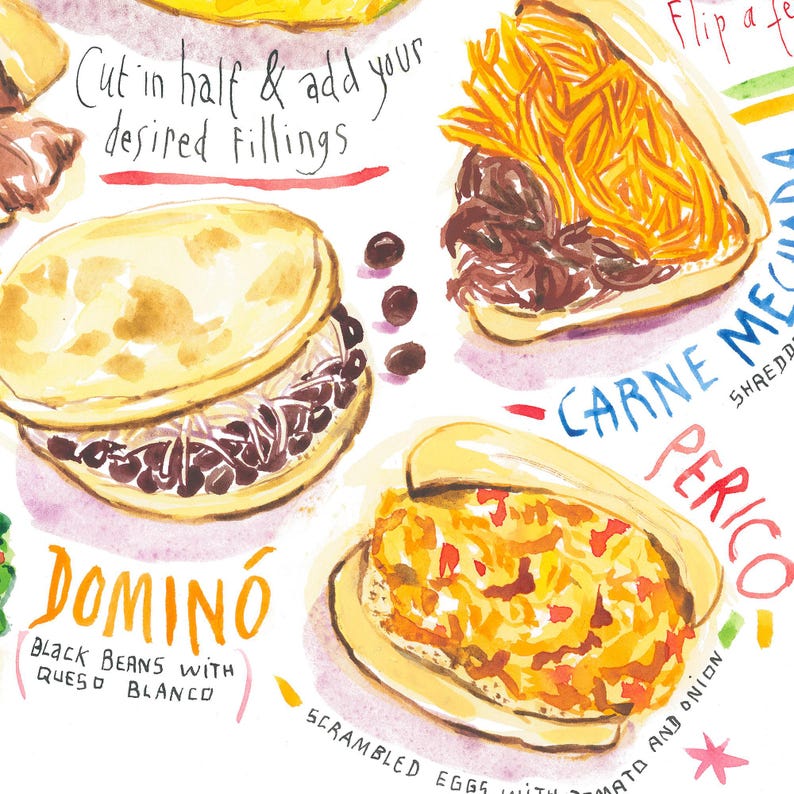 Cut in half & add your
desired fillings
Flip a
CARNE MECHADA
PERICO
DOMINÓ
(BLACK BEANS WITH
QUESO BLANCO)
SCRAMBLED EGGS WITH TOMATO AND ONION